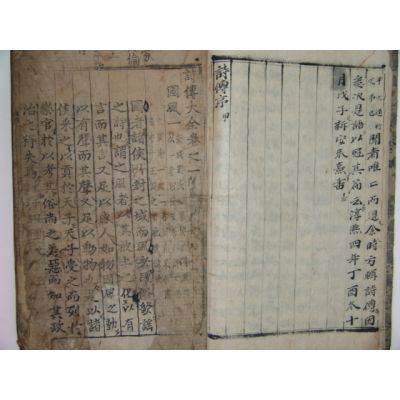 問者唯二而退余時方輯詩傳因
悉次是語以冠其篇云淳熙四年丁酉冬十
月戊子新安朱熹書
詩傳序
詩傳大全卷之一
國風一
國者諸侯所封之域而風者民俗歌謠
之詩也謂之風者以其被上之化以有
言而其言又足以感人如物因風之動
以有聲而其聲又足以動物也是以諸
侯采之以貢於天子天子受之而列於
樂官於以考其俗尚之美惡而知其政
治之得失